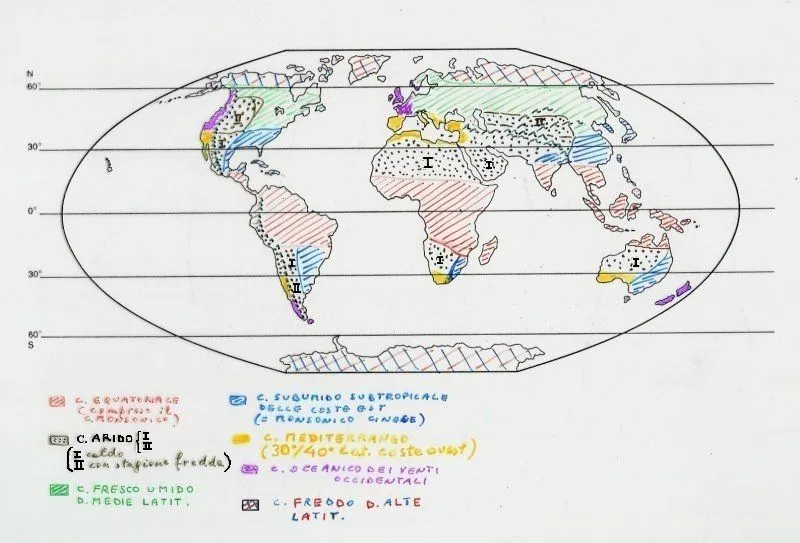 N
60°
30°
0°
30°
60°
S
II
I
II
I
I
I
II
I
I
C. EQUATORIALE
(compreso il
C. MONSONICO)
C. ARIDO { I
II
(I caldo
II con stagione fredda)
C. FRESCO UMIDO
D. MEDIE LATIT.
C. SUBUMIDO SUBTROPICALE
DELLE COSTE EST
(= MONSONICO CINESE)
C. MEDITERRANEO
(30°/40° Lat. coste ovest)
C. OCEANICO DEI VENTI
OCCIDENTALI
C. FREDDO D. ALTE
LATIT.